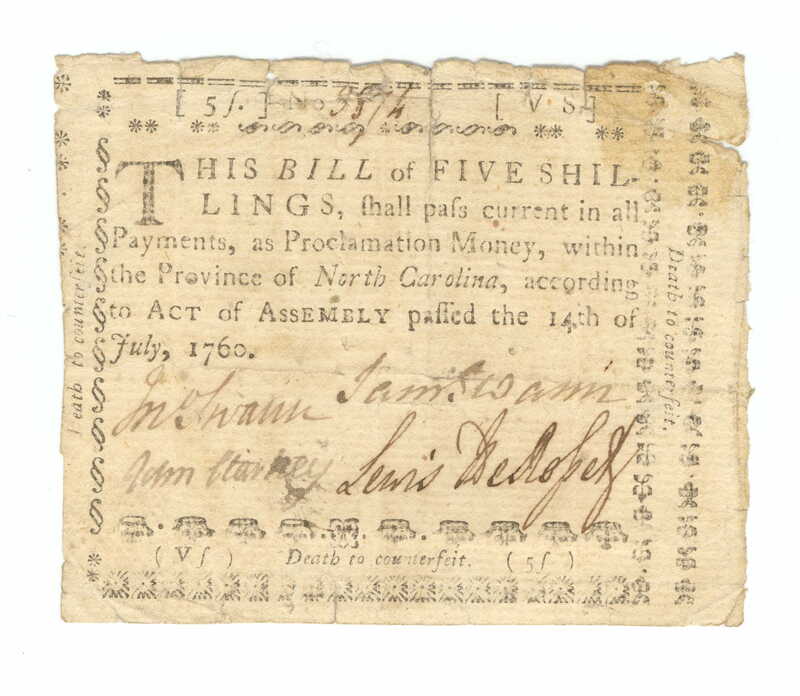 [ 5ſ. ] No. [ V S ]
THIS BILL of FIVE SHIL-
LINGS, ſhall paſs current in all
Payments, as Proclamation Money, within
the Province of North Carolina, according
to ACT of ASSEMBLY paſſed the 14th of
July, 1760.
Jno Swann Sam Swann
Starkey Lewis DeRoſset
( Vſ ) Death to counterfeit. ( 5ſ )
Death to counterfeit.
Death to counterfeit.